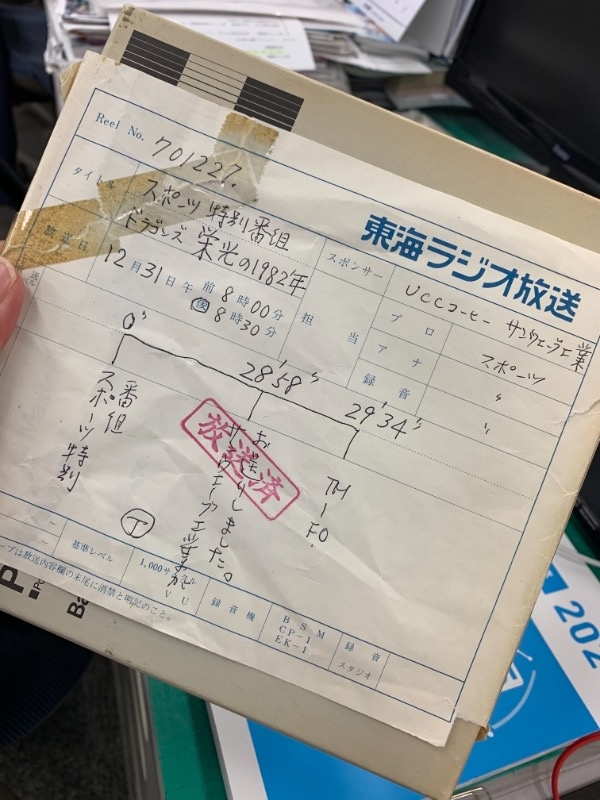 Reel No. 701227.
東海ラジオ放送
タイトル スポーツ 特別番組
ドラゴンズ 栄光の1982年
放送日 12月31日 午 前 8時00分
後 8時30分
スポンサー UCCコーヒー サンウェーブ工業
担当
プロ スポーツ
アナ 〃
録音 〃
0'
28'58"
29'34"
スポーツ特別
番組
お送りしました。
サンウェーブ工業がお
TM-FO.
放送済
丁
基準レベル
1,000サイクル
VU
録音機
BSM
CP-1
EK-1
録音
スタジオ
ープは放送内容欄の末尾に消禁と明記のこと。
P
Ba
202